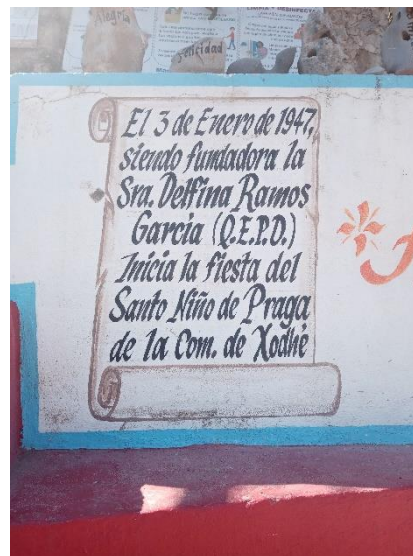 Alegría
Felicidad
El 3 de Enero de 1947,
siendo fundadora la
Sra. Delfina Ramos
García (Q.E.P.D.)
Inicia la fiesta del
Santo Niño de Praga
de la Com. de Xodhé